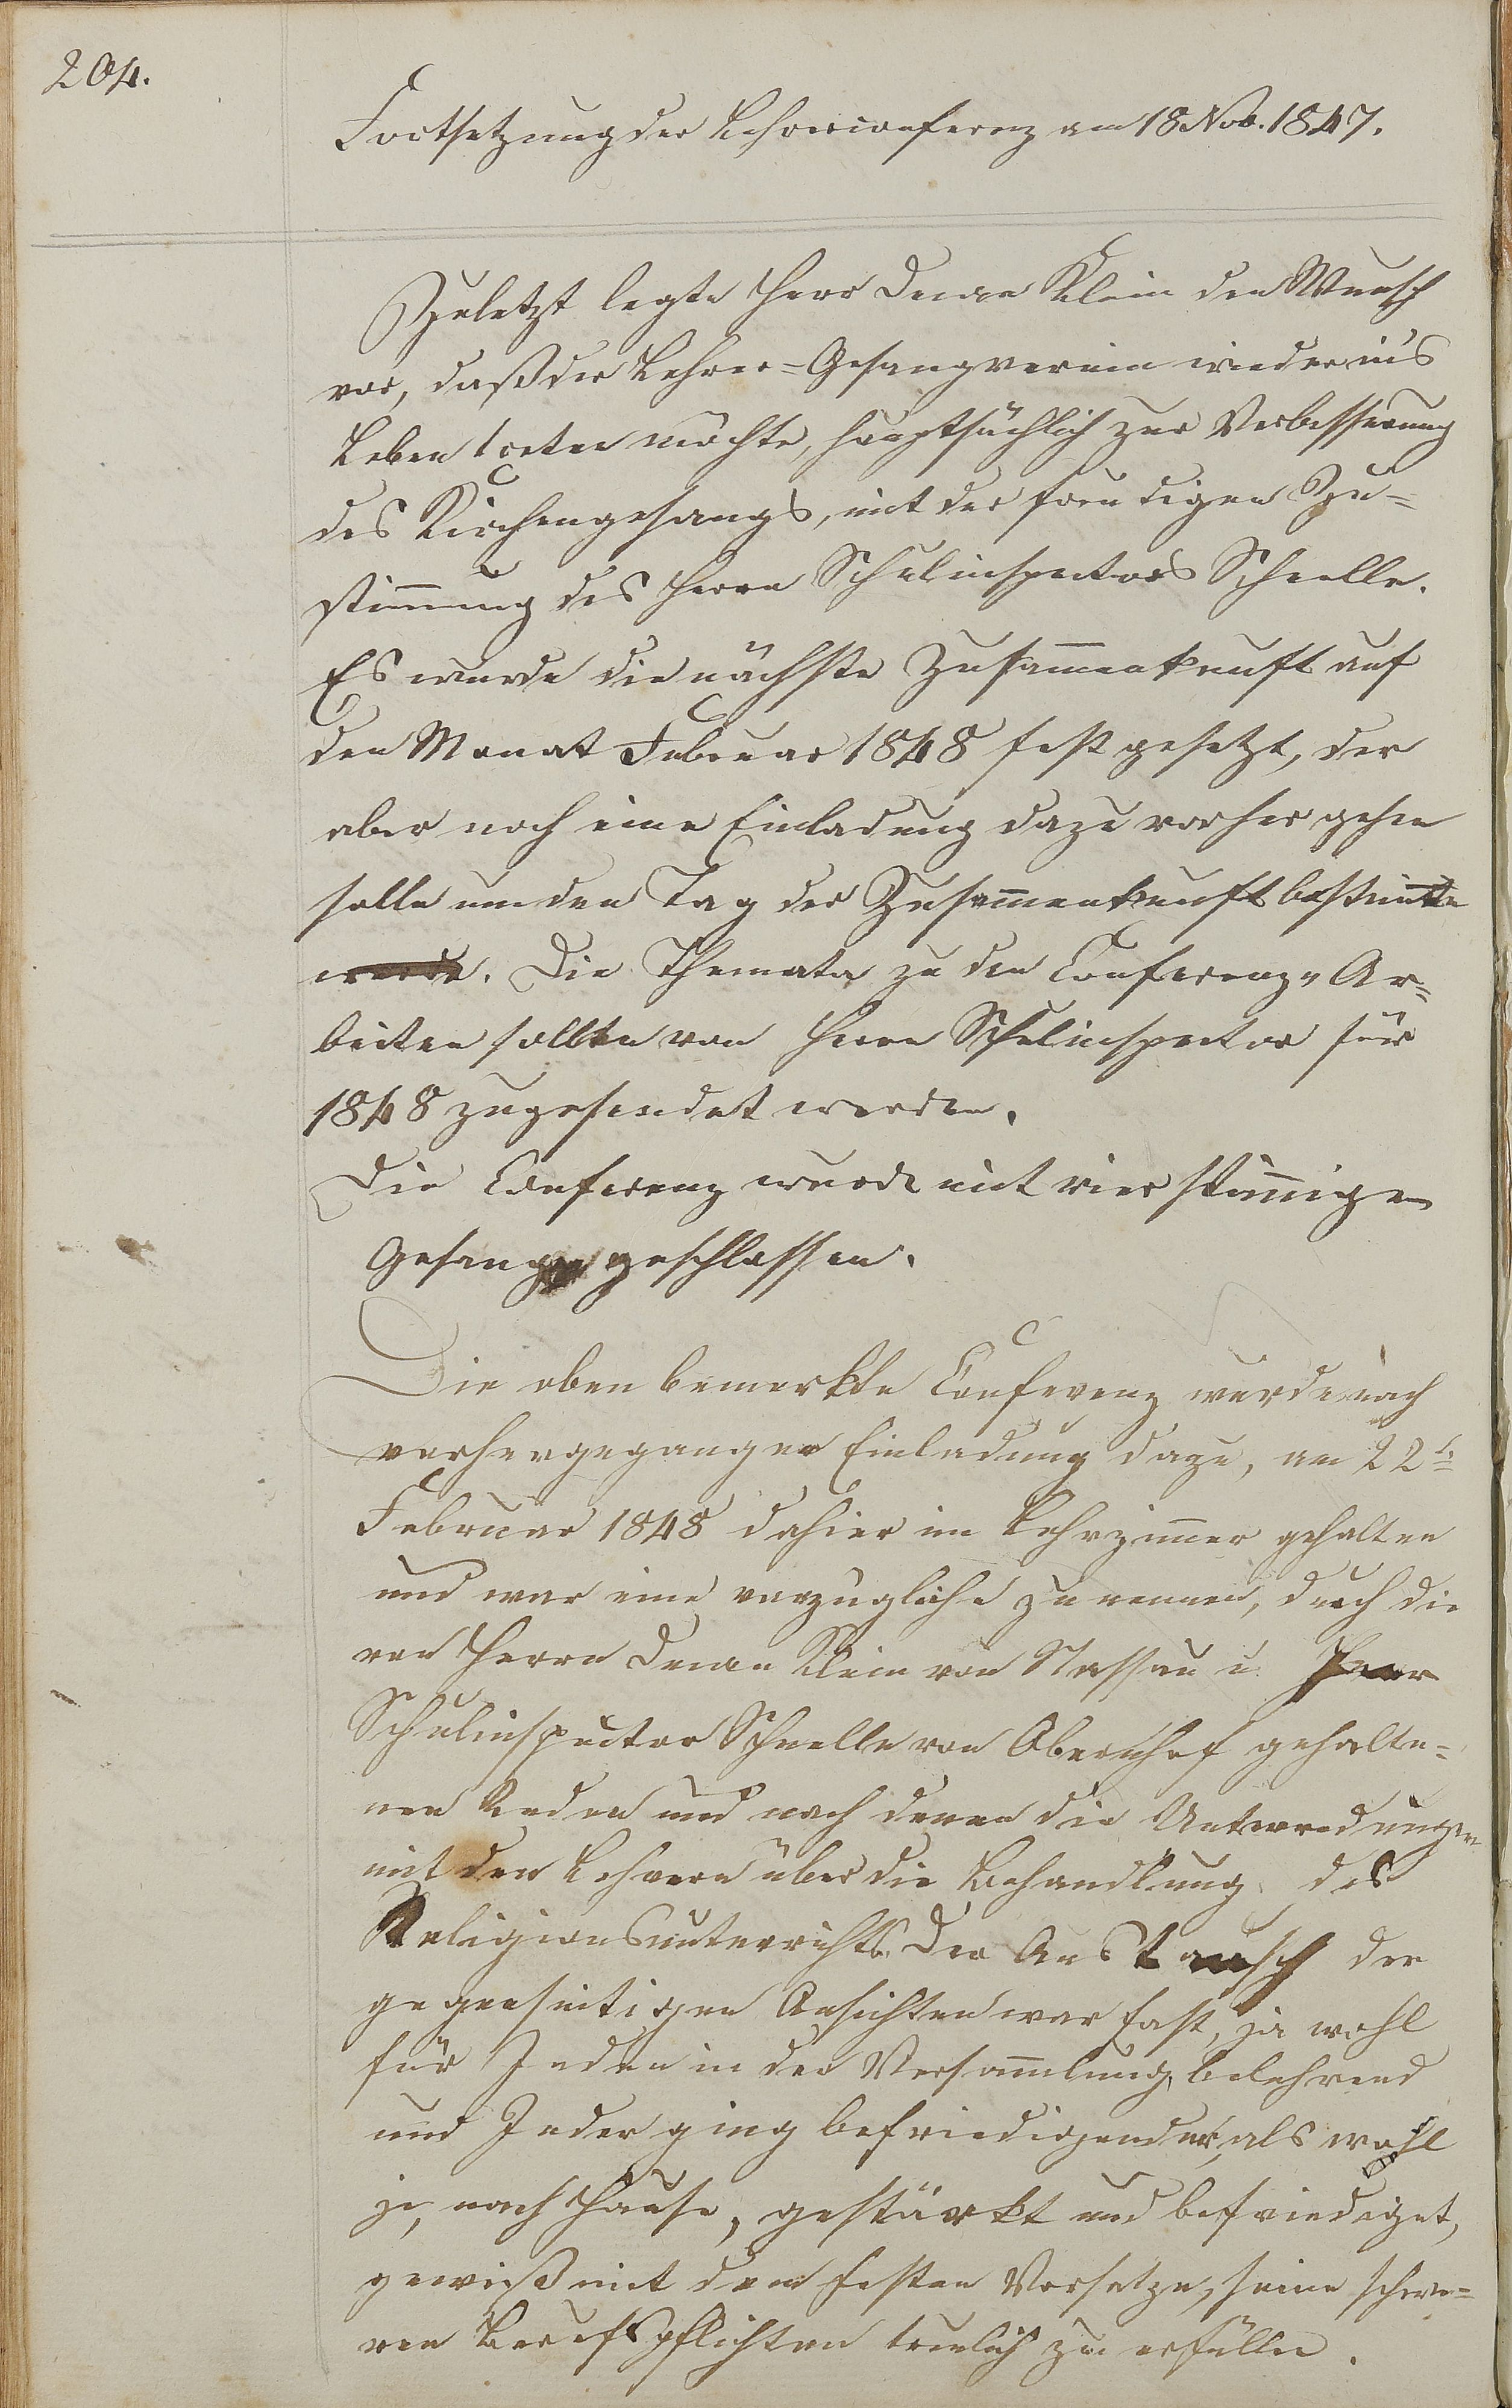 204.
Fortsetzung der Lehrerconferenz am 18 Nov. 1847.
Zuletzt legte Herr Decan Klein den Wunsch
vor, daß der Lehrer-Gesangverein wieder ins
Leben treten möchte, hauptsächlich zur Verbesserung
des Kirchengesangs, mit der freudigen Zu-
stimmung des Herrn Schulinspectors Schnelle.
Es wurde die nächste Zusammenkunft auf
den Monat Februar 1848 fest gesetzt, der
aber noch eine Einladung dazu vorher gehen
solle um den Tag der Zusammenkunft bestimmte
werde. Die Themata zu den Conferenz-Ar-
beiten sollten von Herrn Schulinspector für
1848 zugesendet werden.
Die Conferenz wurde mit vierstimmigen
Gesange geschlossen.
Die oben bemerkte Conferenz wurde nach
vorhergegangener Einladung dazu, am 22t
Februar 1848 dahier im Lehrzimmer gehalten
und war eine vorzügliche zu nennen, durch die
von Herrn Decan Klein von Nassau u. Herr
Schulinspector Schnelle von Obernhof gehalte-
nen Reden und nach denen die Unterredungen
mit den Lehrern über die Behandlung des
Religionsunterrichts. Der Austausch der
gegenseitigen Ansichten war fast, ja wohl
für Jeden in der Versammlung, belehrend
und Jeder ging befriedigender, als wohl
je, nach Hause, gestärkt und befriediget,
gewiß mit dem festen Vorsatze, seine schwe-
ren Berufspflichten treulich zu erfüllen.